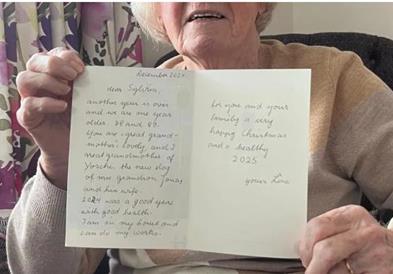 December 2024
dear Sylvia,
another year is over
and we are one year
older. 88 and 89.
You are great grand-
mother, lovely, and I
great grandmother of
the new dog
of my grandson Jonas
and his wife.
2024 was a good year
with good health.
I am in my house and
can do my works.
for you and your
family a very
happy Christmas
and a healthy
2025
yours